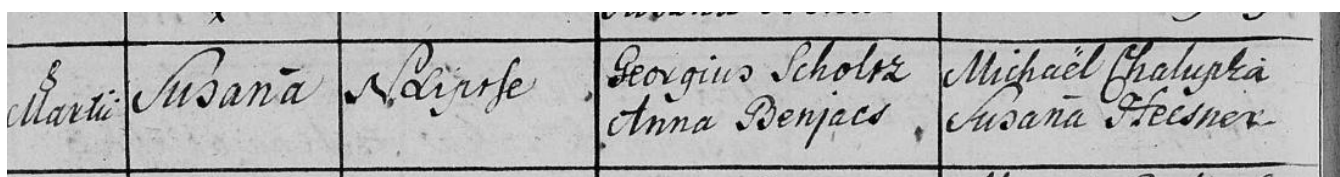 8
Martii
Susaña
N. Lipsse
Georgius Scholtz
Anna Benjacs
Michaël Chalupka
Susaña Hecsner